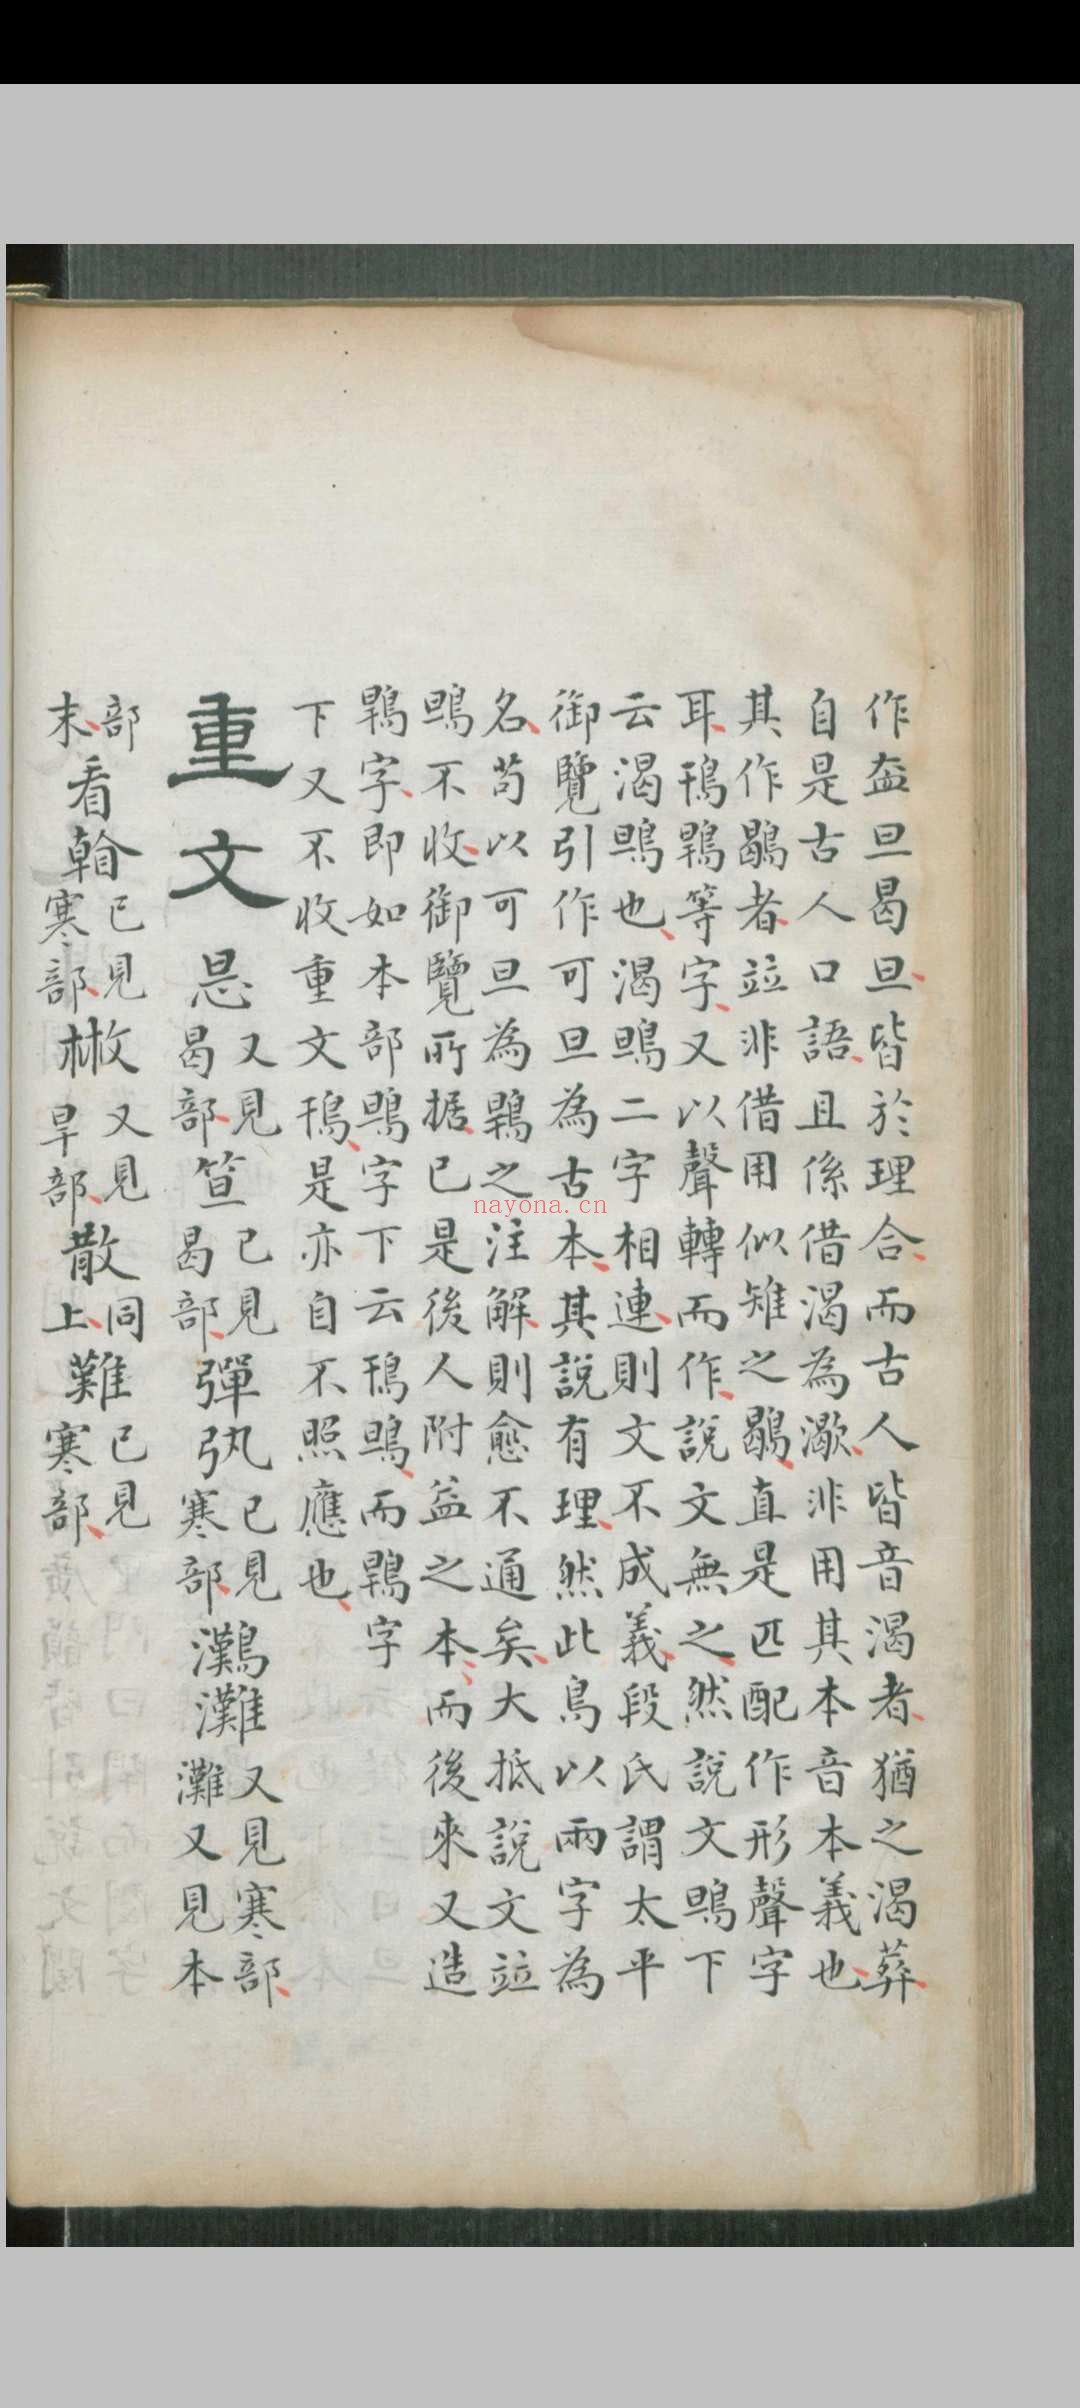 作盇旦曷旦皆於理合而古人皆音渴者猶之渴葬
自是古人口語且係借渴為㵣非用其本音本義也
其作鶡者竝非借用似雉之鶡直是匹配作形聲字
耳鳱鶾等字又以聲轉而作說文無之然說文鴠下
云渴鴠也渴鴠二字相連則文不成義段氏謂太平
御覽引作可旦為古本其說有理然此鳥以兩字為
名苟以可旦為鶾之注解則愈不通矣大抵說文竝
鴠不收御覽所据已是後人附益之本而後來又造
字即如本部鴠字下云鳱鴠而字
下又不收重文鳱是亦自不照應也
重文
又見
曷部
笪
已見
曷部
彈
已見
寒部
灘
又見寒部
灘又見本
部
末
看
已見
寒部
又見
旱部
散
同
上
難
已見
寒部
nayona.cn